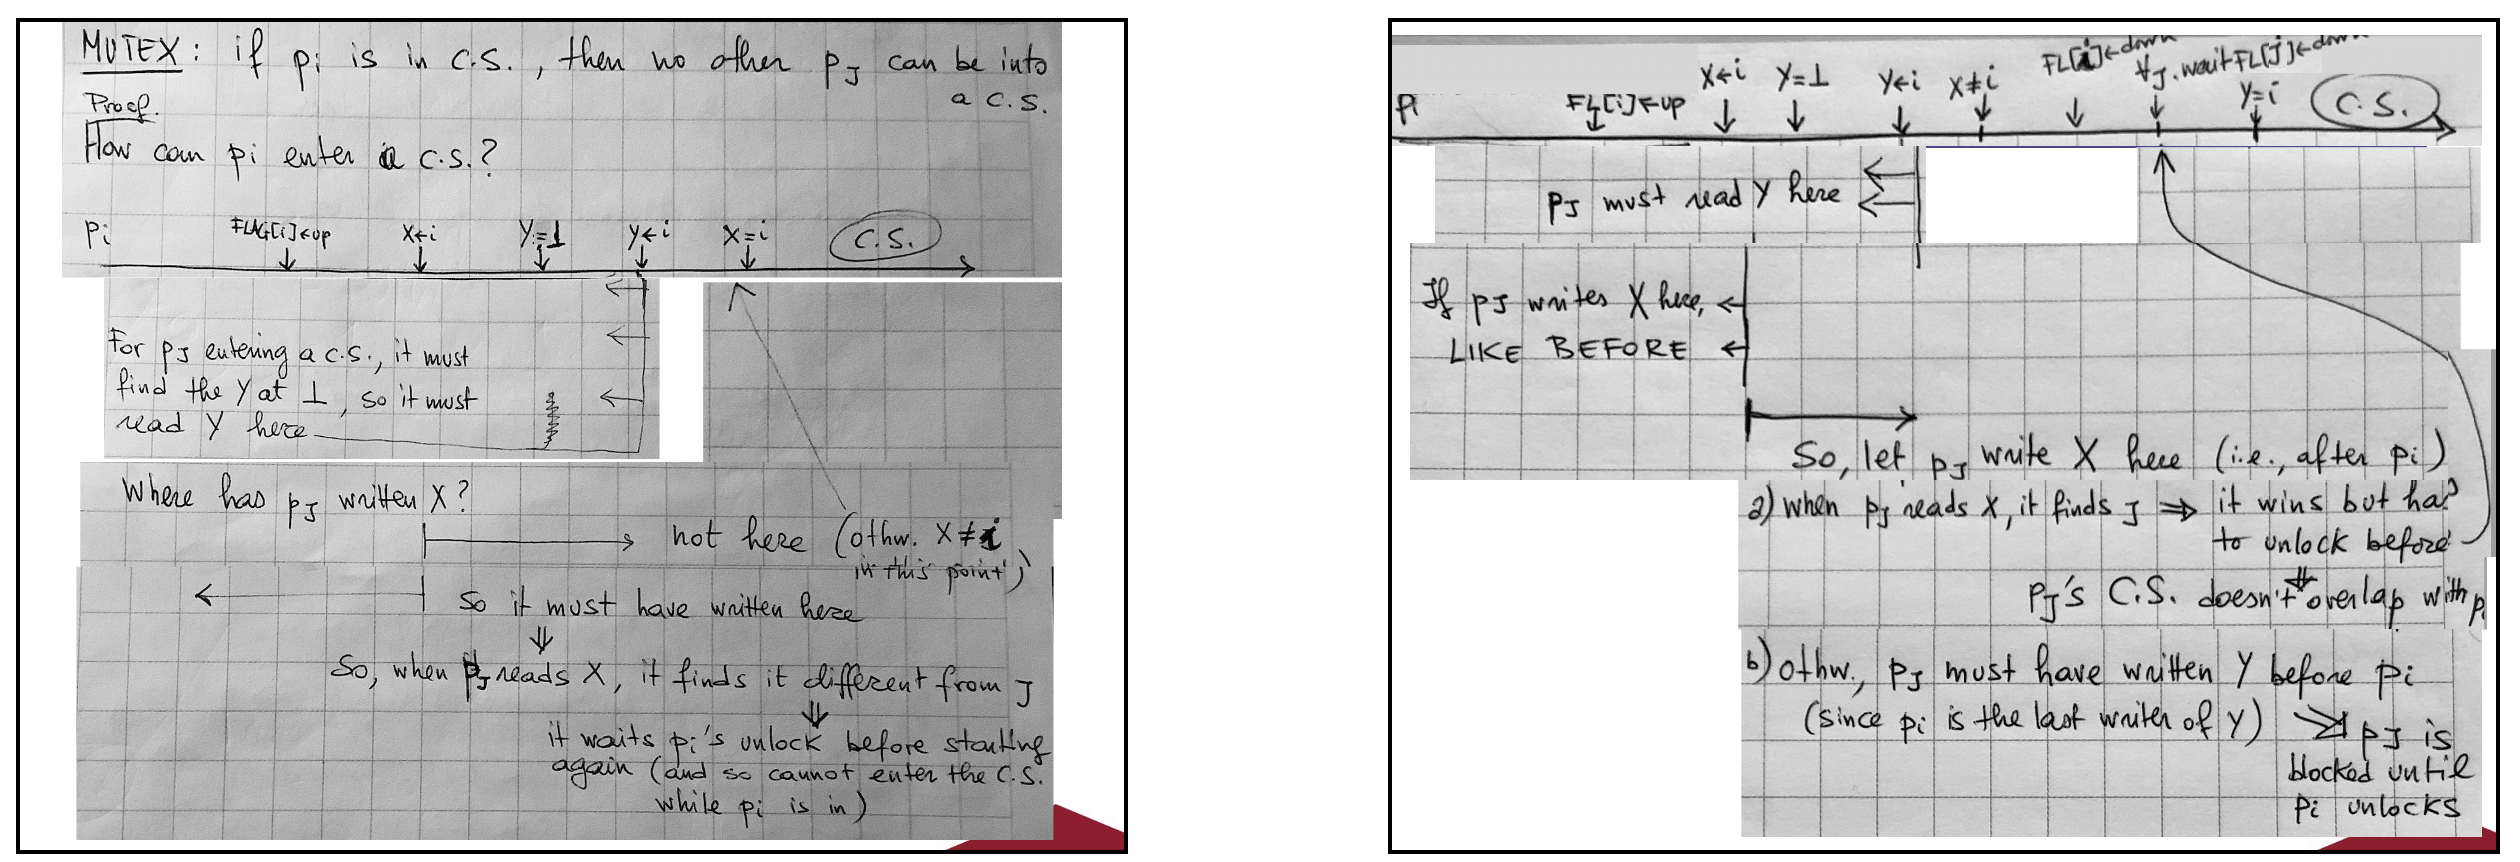 MUTEX: if pi is in C.S., then no other pJ can be into
a C.S.
Proof.
How can pi enter a C.S.?
pi FLAG[i]←up X←i Y=⊥ Y←i X=i C.S.
For pJ entering a C.S., it must
find the Y at ⊥, so it must
read Y here
Where has pJ written X?
not here (othw. X≠i
in this point)
So it must have written here
⇓
So, when pJ reads X, it finds it different from J
⇓
it waits pi's unlock before starting
again (and so cannot enter the C.S.
while pi is in)
pi FL[i]←up X←i Y=⊥ Y←i X≠i FL[i]←down ∀J. wait FL[J]←down Y=i C.S.
pJ must read Y here
If pJ writes X here,
LIKE BEFORE
So, let pJ write X here (i.e., after pi)
a) when pJ reads X, it finds J ⇒ it wins but has
to unlock before
⇓
pJ's C.S. doesn't overlap with pi
b) othw., pJ must have written Y before pi
(since pi is the last writer of Y) ⇒ pJ is
blocked until
pi unlocks